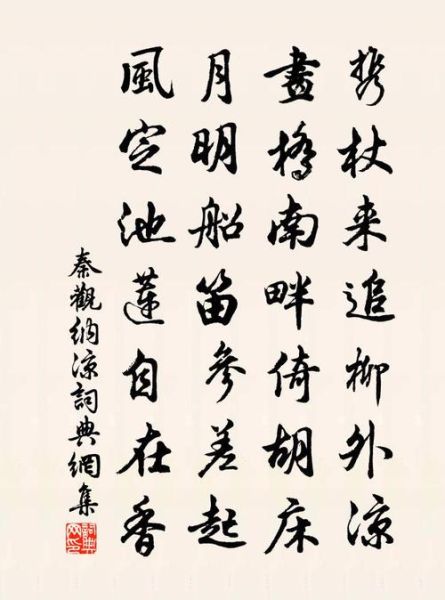 携杖来追柳外凉
畫橋南畔倚胡床
月明船笛參差起
風定池蓮自在香
秦觀納凉詞典網集